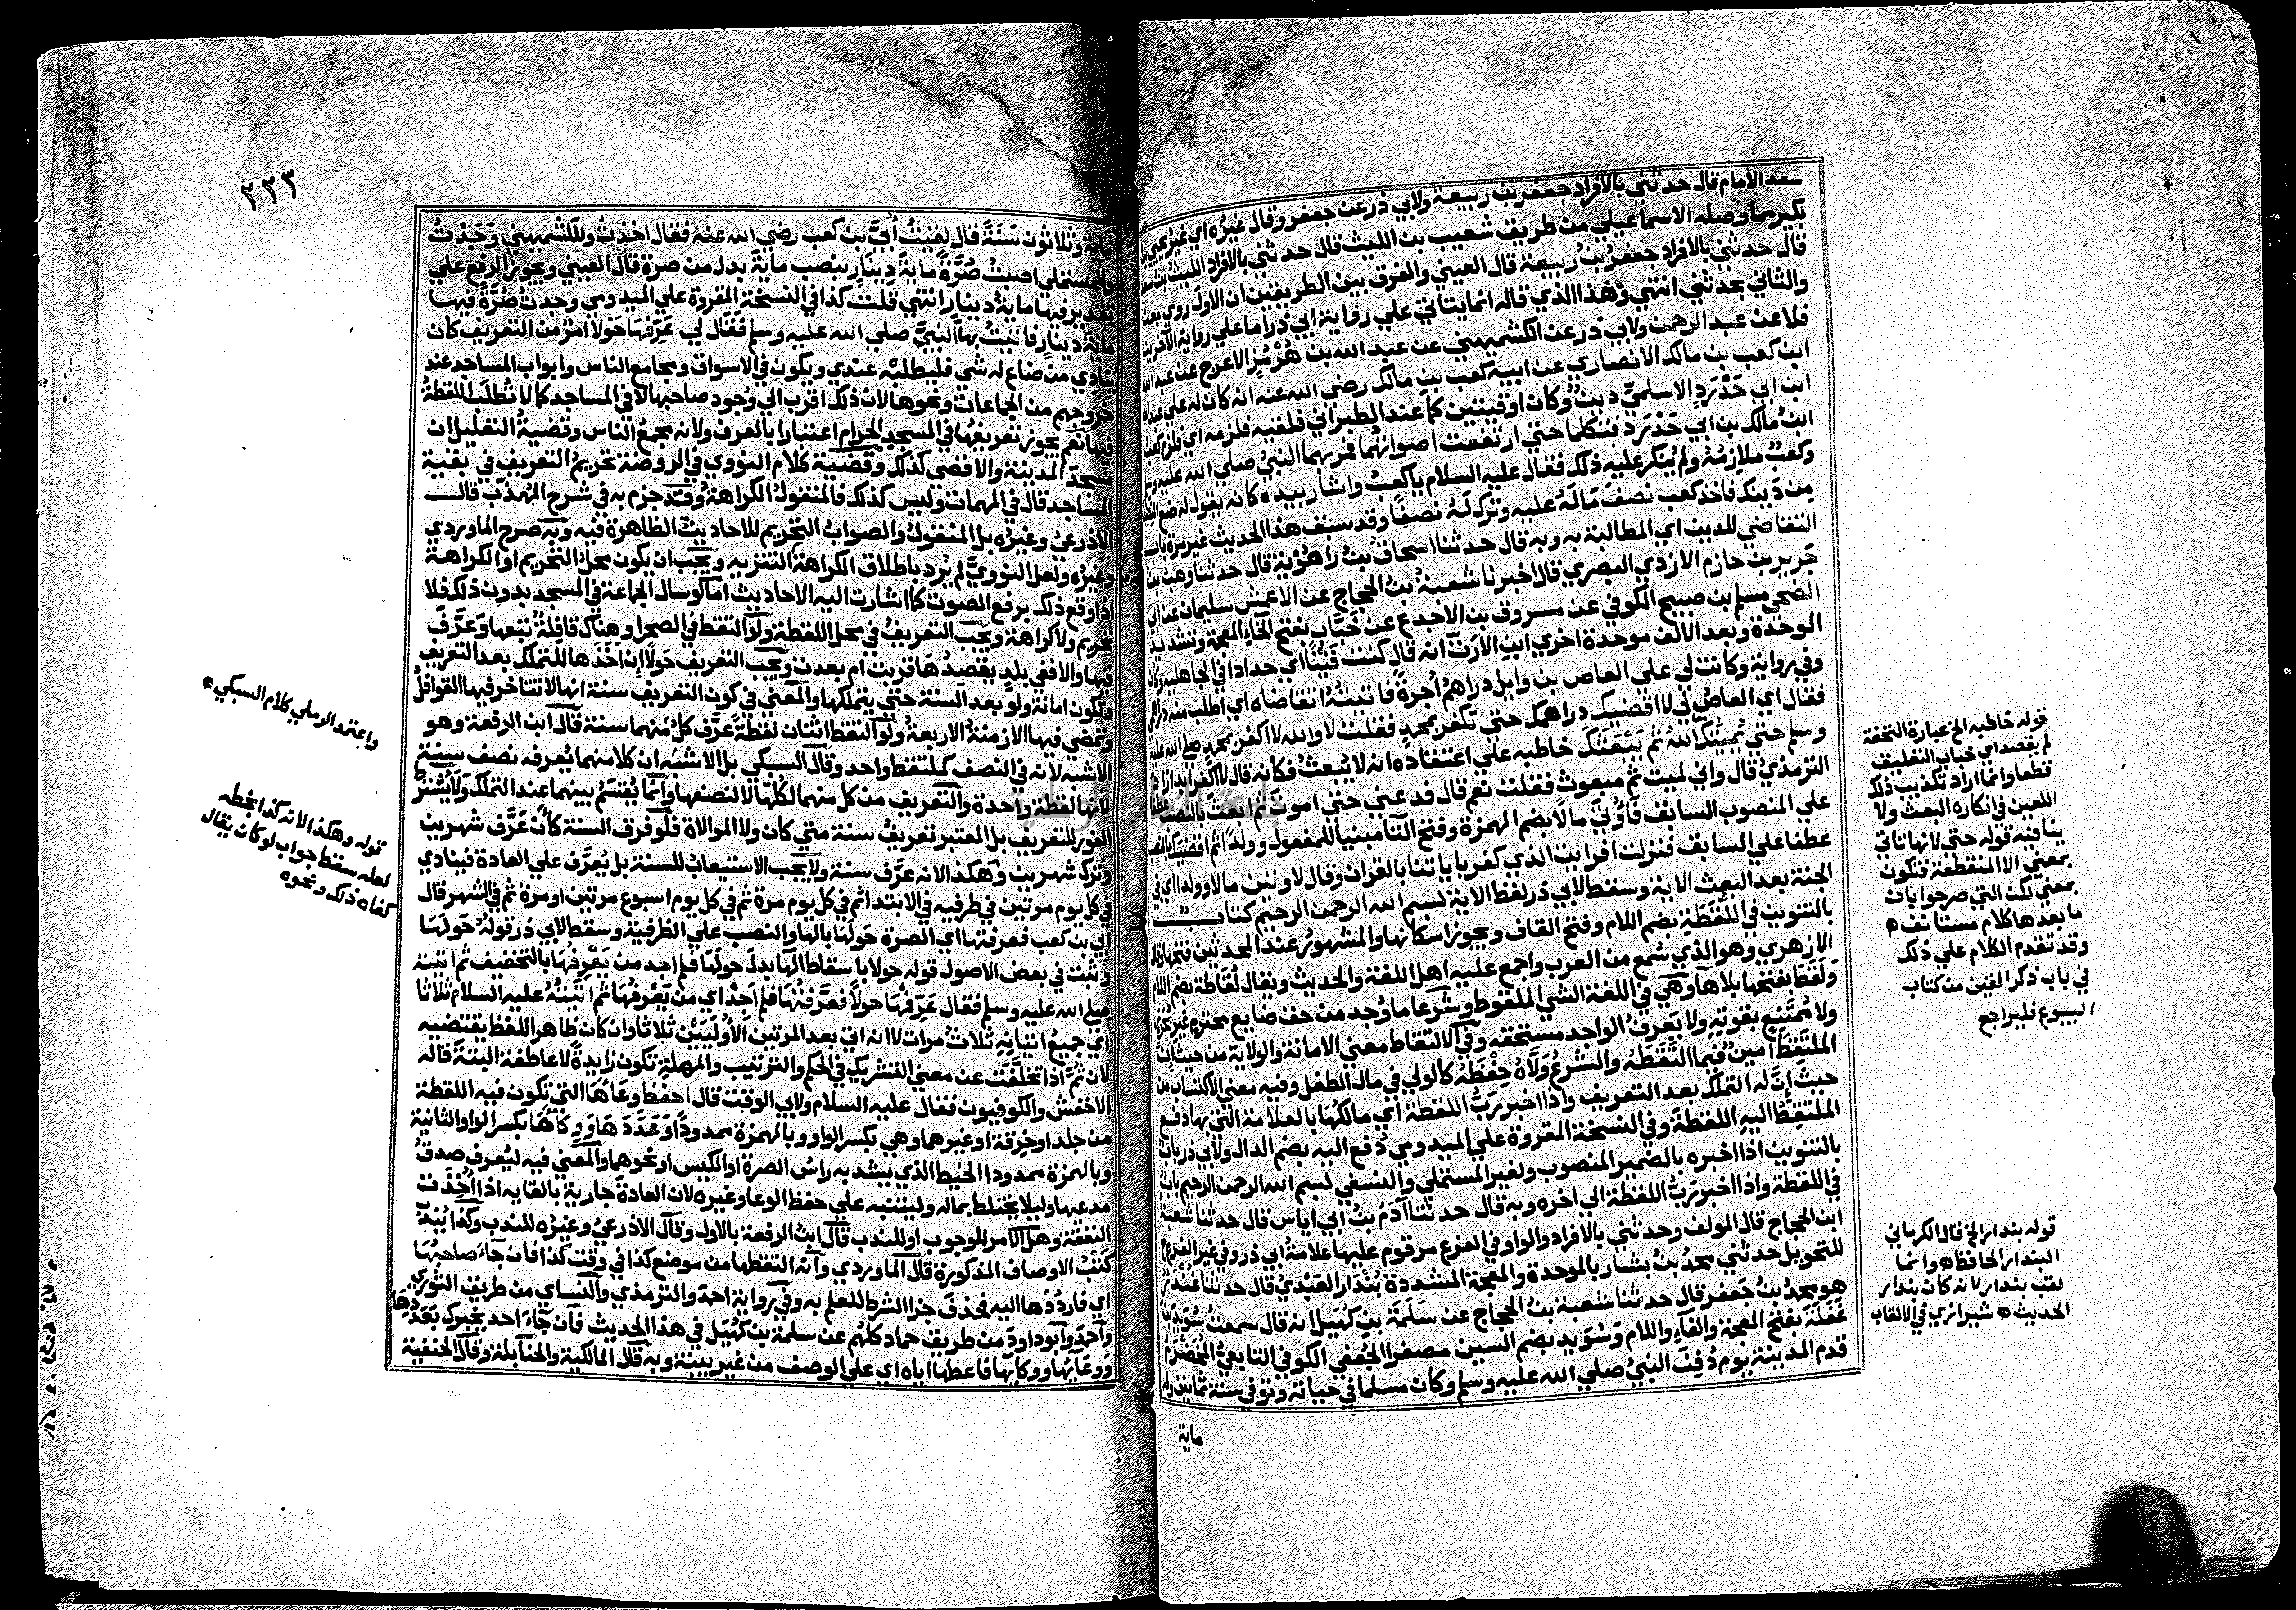 سعد الامام قال حدثني بالافراد جعفر بن ربيعة ولابي ذر عن جعفر وقال غيره اي غير يحيي بن
بكير مما وصله الاسماعيلي من طريق شعيب بن الليث قال حدثني بالافراد الليث بن سعد
قال حدثني بالافراد جعفر بن ربيعة قال العيني والفرق بين الطريقين ان الاول روي بعن
والثاني بحدثني انتهي وهذا الذي قاله انما يتاتي علي رواية ابي ذر اما علي رواية الآخرين
فلا عن عبد الرحمن ولابي ذر عن الكشميهني عن عبد الله بن هُرْمُز الاعرج عن عبد الله
ابن كعب بن مالك الانصاري عن ابيه كعب بن مالك رضي الله عنه انه كان له علي عبد الله
ابن ابي حَدْرَد الاسلمي دين وكان اوقيتين كما عند الطبراني فلقيه فلزمه اي فلزم كعب
ابن مالك بن ابي حَدْرَد فتكلما حتي ارتفعت اصواتهما فمر بهما النبي صلي الله عليه وسلم
وكعب ملازمه ولم ينكر عليه ذلك فقال عليه السلام ياكعب واشار بيده كانه يقول له ضع النصف
من دَينك فاخذ كعب نصف مَالَهُ عليه وترك لَهُ نصفًا وقد سبق هذا الحديث غير مرة باب
التقاضي للدين اي المطالبة به وبه قال حدثنا اسحاق بن راهُوْيَة قال حدثنا وهب بن
جَرير بن حازم الازدي البصري قال اخبرنا شعبة بن الحجاج عن الاعمش سليمان عن ابي
الضحي مسلم بن صبيح الكوفي عن مسروق بن الاجدع عن خَبَّاب بفتح الخاء المعجمة وتشديد
الموحدة وبعد الالف موحدة اخري ابن الارتّ انه قال كنت قَيْنًا اي حدادا في الجاهلية وكان
وفي رواية وكانت لي علي العاص بن وايل دراهم اُجرةً فاتيتُه اتقاضاه اي اطلب منه دراهمي
فقال اي العاص لي لا اقضيك دراهمك حتي تكفر بمحمد فقلت لا والله لا اكفر بمحمد صلي الله عليه
وسلم حتي يُميتكَ اللهُ ثم يَبْعَثَكَ خاطبه علي اعتقاده انه لا يُبعث فكانه قال لا اكفر ابدا زاد
الترمذي قال واني لميت ثم مبعوث فقلت نعم قال فدعني حتي اموتَ ثم ابعثَ بالنصب عطفا
علي المنصوب السابق فَأُوتَيَ مَالًا بضم الهمزة وفتح التا مبنيا للمفعول وولدًا ثم اقضيَك بالنصب
عطفا علي السابق فنزلت افرايت الذي كفر باياتنا بالقران وقال لاوتين مالا وولدا اي في
الجنة بعد البعث الاية وسقط لابي ذر لفظ الاية بسم الله الرحمن الرحيم كتاب
بالتنوين في اللُّقَطَةِ بضم اللام وفتح القاف ويجوز اسكانها والمشهور عند المحدثين فتحها قال
الازهري وهو الذي سُمع من العرب واجمع عليه اهل اللغة والحديث ويقال لُقَاطة بضم اللام
وَلَقَط بفتحها بلا هاء وهي في اللغة الشي الملقوط وشرعا ما وُجد من حق ضايع محترم غير محرز
ولا مُمْتَنِع بقوته ولا يَعرفُ الواجد مستحقه وفي الالتقاط معني الامانة والولاية من حيث ان
الملتقط امينٌ فيما التقطَهُ والشرعُ وَلّاهُ حِفْظَهُ كالولي في مال الطفل وفيه معني الاكتساب من
حيث إنّ له التملك بعد التعريف واذا اخبر رَبُّ اللقطة اي مالكها بالعلامة التي بها دفع
الملتقِطُ اليهِ اللقطةَ وفي النسخة المقروة علي الميدومي دُفع اليه بضم الدال ولابي ذر باب
بالتنوين اذا اخبره بالضمير المنصوب ولغير المستملي والنسفي بسم الله الرحمن الرحيم باب
في اللقطة واذا اخبر رَبُّ اللقطة الي اخره وبه قال حدثنا آدم بن ابي اياس قال حدثنا شعبة
ابن الحجاج قال المولف وحدثني بالافراد والواو في الفرع مرقوم عليها علامة ابي ذر وفي غير الفرع ح
للتحويل حدثني محمد بن بشار بالموحدة والمعجمة المشددة بُنْدَار العَبْدي قال حدثنا غُنْدَر
هو محمد بن جعفر قال حدثنا شعبة بن الحجاج عن سَلَمَةَ بن كُهَيل انه قال سمعتُ سُوَيْدَ بن
غَفَلَة بفتح المعجمة والفاء واللام وَسُوَيد بضم السين مصغرا الجُعْفي الكوفي التابعيُّ المخضرَم
قدم المدينة يوم دُفِنَ النبيُ صلي الله عليه وسلم وكان مسلما في حياته وتوفي سنة ثمانين وله
ماية
قوله خاطبه الخ عبارة التحفة
لم يقصد اي خباب التعليق
قطعا وانما اراد تكذيب ذلك
اللعين في انكاره البعث ولا
ينافيه قوله حتي لانها تاتي
بمعني الا المنقطعة فتكون
بمعني لكن التي صرحوا بان
ما بعدها كلام مستانف ه
وقد تقدم الكلام علي ذلك
في باب ذكر القين من كتاب
البيوع فليراجع
قوله بندار الخ قال الكرماني
البندار الحافظ ه وانما
لقب بندار لانه كان بندار
الحديث ه شيرازي في الالقاب
٣٣٣
ماية وثلاثون سَنَةً قال لقيتُ أُبَيَّ بن كعب رضي الله عنه فقال اخذتُ وللكشميهني وَجَدْتُ
وللمستملي اصبتُ صُرَّةً مايةَ دِينَارٍ بنصب مايةَ بدل من صرة قال العيني ويجوز الرفع علي
تقدير فيها مايةُ دينار انتهي قلت كذا في النسخة المقروة علي الميدومي وجدت صُرَّةً فيها
مايةُ دينار فاتيتُ بها النبيَّ صلي الله عليه وسلم فَقَال لي عَرِّفها حَوْلًا امرٌ من التعريف كان
يُنَادي من ضاع له شي فليطلبْه عندي ويكون في الاسواق ومجامع الناس وابواب المساجد عند
خروجهم من الجماعات ونحوها لان ذلك اقرب الي وُجود صاحبها لا في المساجد كما لا تُطلَب اللقطةُ
فيها نعم يجوز تعريفُها في المسجد الحرام اعتبارا بالعرف ولانه مجمعُ الناس وقضيةُ التعليل ان
مسجدَ المدينة والاقصي كذلك وقضية كلام النووي في الروضة تحريم التعريف في بقية
المساجد قال في المهمات وليس كذلك فالمنقولُ الكراهةُ وقد جزم به في شرح المهذب قال
الاذرعي وغيرُه بل المنقولُ والصوابُ التحريم للاحاديث الظاهرة فيه وبه صرح الماوردي
وغيرُه ولعل النوويَّ لم يُرد باطلاق الكراهة التنزيه ويجب ان يكون محلُ التحريم او الكراهة
اذا وقع ذلك برفع الصوت كما اشارت اليه الاحاديث اما لو سال الجماعة في المسجد بدون ذلك فلا
تحريم ولا كراهة ويجب التعريفُ في محل اللقطة ولو التقط في الصحرا وهناك قافلةٌ تبعها وعَرَّفَ
فيها والا ففي بلد يقصدُ هَا قربت ام بعدت ويجب التعريف حَولًا إن اخَذَها للتملك بعد التعريف
وتكون امانة ولو بعد السنة حتي يتملكها والمعني في كون التعريف سنة انها لا تتاخر فيها القوافلُ
وتمضي فيها الازمنةُ الاربعةُ ولو التقط اثنان لقطةً عَرَّفَ كلٌ منهما سنة قال ابن الرفعة وهو
الاشبه لانه في النصف كملتقط واحد وقال السبكي بل الاشبَهُ ان كلا منهما يُعرفه نصف سنة
لانها لقطة واحدة والتعريف من كل منهما لكلها لا لنصفها وانما يُقتسَم بينهما عند التملك ولا يشترط
الفور للتعريف بل المعتبر تعريفُ سنة متي كان ولا الموالاة فلو فرق السنة كأن عَرَّفَ شهرين
وترك شهرين وهكذا لانه عرَّف سنة ولا يجب الاستيعابُ للسنة بل يُعرَّف علي العادة فينادي
في كل يوم مرتين في طرفيه في الابتدا ثم في كل يوم مرة ثم في كل يوم اسبوع مرتين او مرة ثم في الشهر قال
ابي بن كعب فعرفتها اي الصرة حَولَهَا بالها والنصب علي الظرفية وسقط لابي ذر قولُهُ حَولَهَا
وثبت في بعض الاصول قوله حولا باسقاط الها بدل حولها فلم اجد من يَعْرِفُهَا بالتخفيف ثم اتيتُه
صلي الله عليه وسلم فقال عَرِّفْهَا حولًا فعَرَّفتُهَا فلم اَجِدْ اي من يَعْرفُهَا ثم اتيتُهُ عليه السلام ثلاثا
اي جميعُ اتيانِهِ ثلاثُ مرات لا انه اتي بعد المرتين الأُولَيَيْن ثلاثا وان كان ظاهر اللفظ يقتضيه
لان ثُمَّ اذا تخلَّفت عن معني التشريك في الحكم والترتيب والمهلةِ تكون زايدةً لا عاطفة البتةَ قاله
الاخفش والكوفيون فقال عليه السلام ولابي الوقت قال احفظ وعَاهَا التي تكون فيه اللقطة
من جلد او خرقة او غيرهما وهي بكسر الواو وبالهمزة ممدودًا وَعَدَدَهَا وَوِكَاهَا بكسر الواو الثانية
وبالهمزة ممدودا الخيط الذي يشد به راسُ الصرة او الكيس او نحوهما والمعني فيه ليُعرف صدقُ
مدعيها وليلا يختلط بماله وليتنبه علي حفظ الوعا وغيره لان العادةَ جاريةٌ بالقايه اذا اُخِذَت
النفقة وهل الامر للوجوب او للندب قال ابن الرفعة بالاول وقال الاذرعيُ وغيرُه للندب وكذا يُندبُ
كَتْبُ الاوصاف المذكورة قال الماوردي وانه التقطها من موضع كذا في وقت كذا فان جَاءَ صاحبُهَا
اي فاردُدْها اليه فحذفَ جزا الشرط للعلم به وفي رواية احمدَ والترمذي والنسايِ من طريق الثوري
وأحمدَ وأبو داودَ من طريق حماد كلهم عن سلمة بن كُهَيل في هذا الحديث فان جَاءَ احد يخبرك بعَدَدِهَا
وَوِعَايَهَا ووكايها فاعطها اياه اي علي الوصف من غير بينة وبه قال المالكية والحنابلة وقال الحنفية
واعتمد الرملي كلام السبكي ه
قوله وهكذا لانه كذا بخطه
لعله سقط جواب لو كان يقال
كفاه ذلك ونحوه